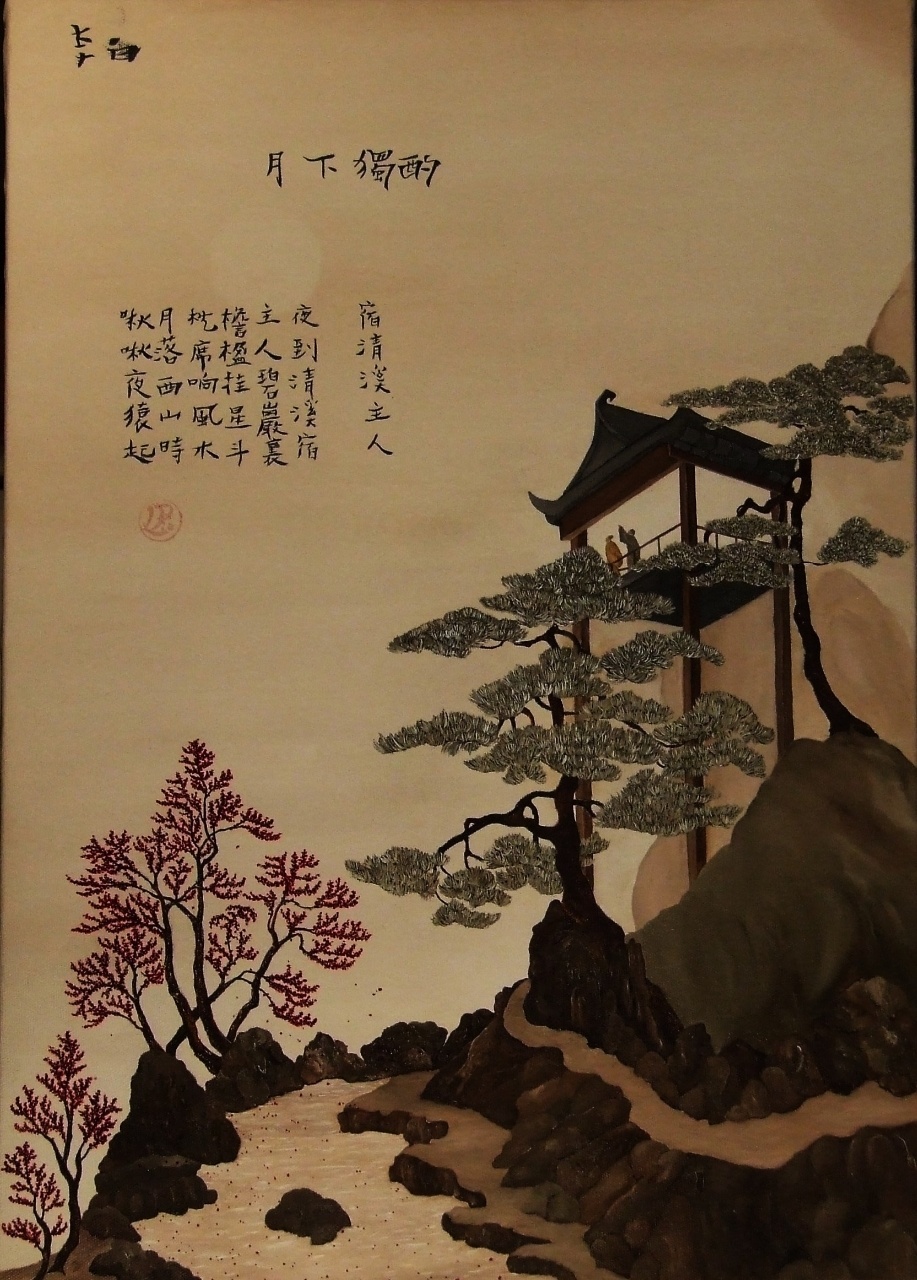 月下獨酌
宿清溪主人
夜到清溪宿
主人碧巖裏
檐楹挂星斗
枕席响風水
月落西山時
啾啾夜猿起